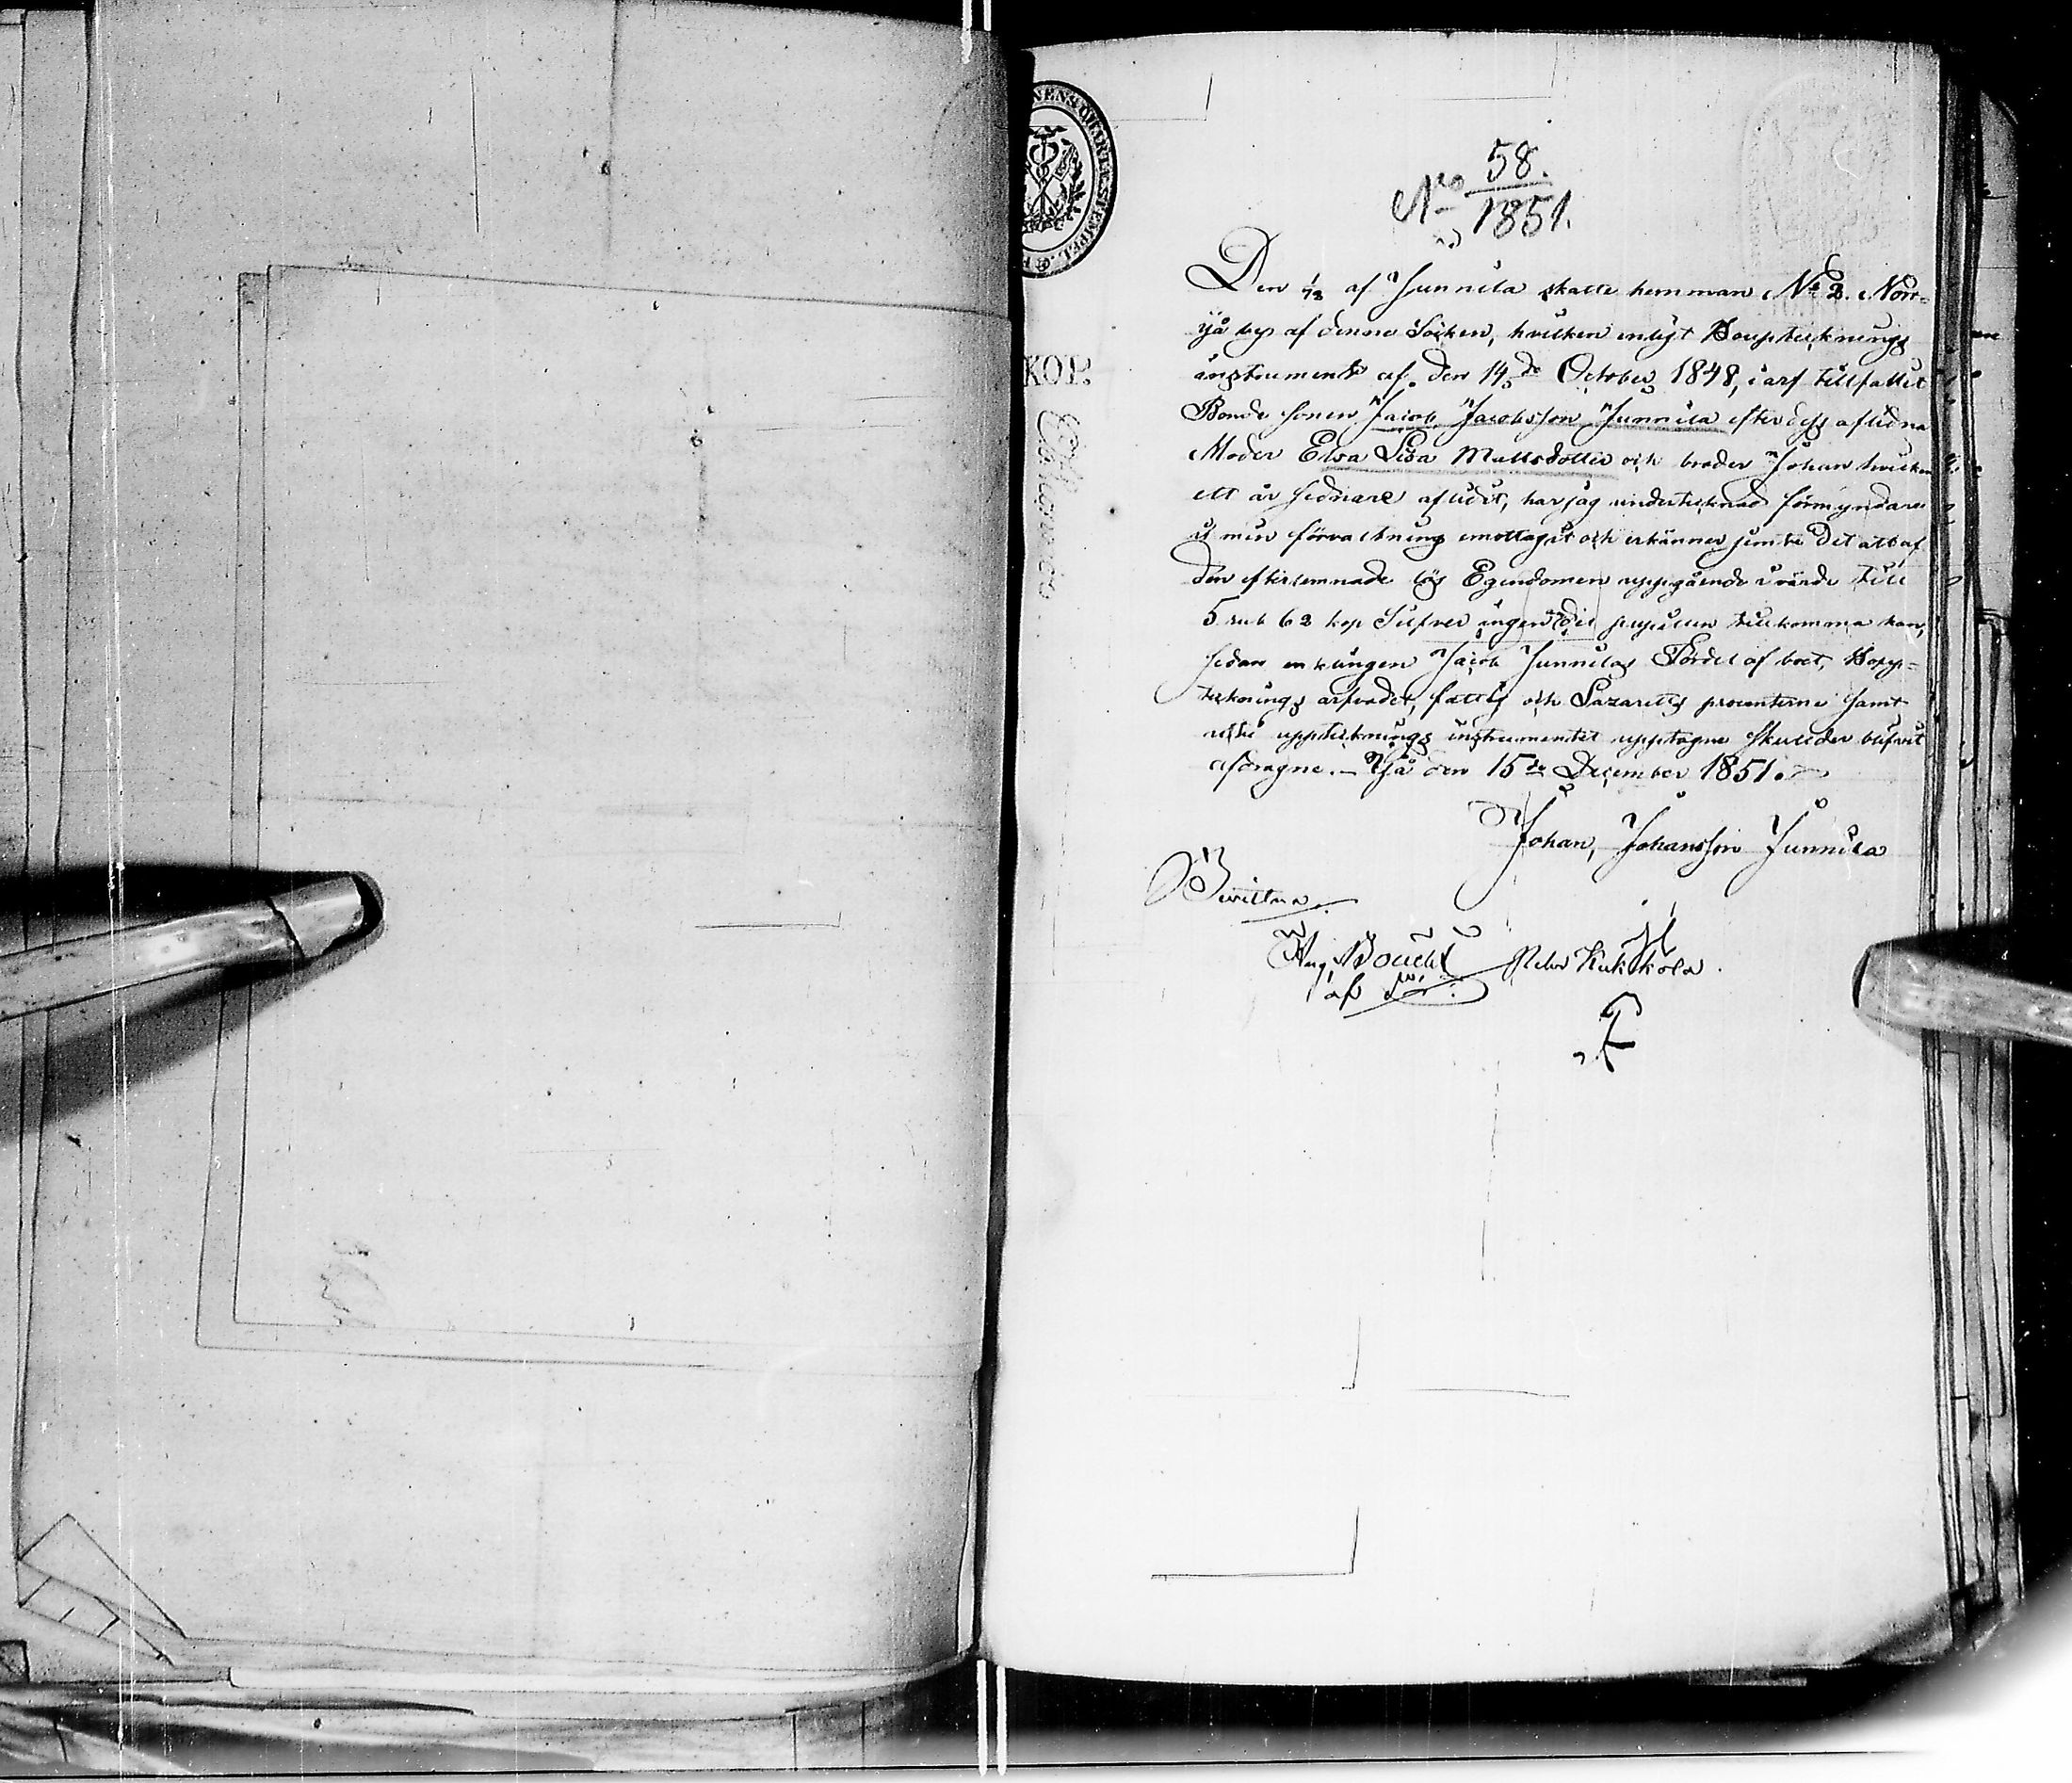 No 58.
1851.
Den 1/12 af Junnila skatte hemman No 2. Norr-
yjå by af denna Socken, hvilken enligt Boupteknings
instrument af den 14de October 1848, i arf tillfallit
Bonde sonen Jacob Jacobsson Junnila efter dess aflidna
Moder Elsa Lisa Mattsdotter och broder Johan hvilken
ett år sednare aflidit, har jag undertecknad förmyndare
i min förvaltning emottagit och erkänner jemte det att af
den efterlemnade lös Egendomen uppgående i värde till
5 rub 62 kop Silfver ingen del pupillen tillkomma kan,
sedan enklingen Jacob Junnilas Fördel af boet, Bopp-
teknings arfvodet, fattig och Lazaretts procenterne samt
uti uppteknings instrumentet upptagne skulder blifvit
afdragne. — Yjå den 15de December 1851.
Johan, Johansson Junnila
Bevittna
Aug Boucht Petter Kukkola.
af
KOP.